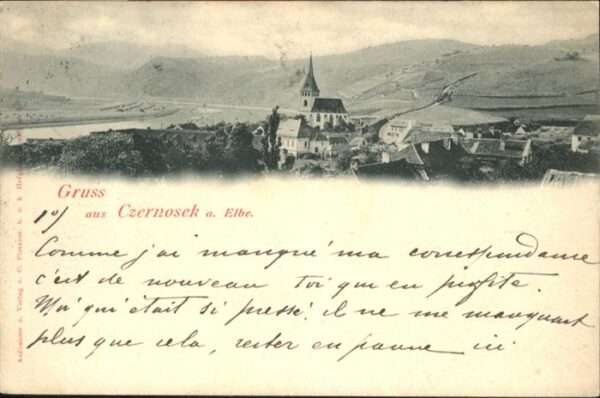 Gruss
aus Czernosek a. Elbe.
10/
Comme j'ai manqué ma correspondance
c'est de nouveau toi qui en profite.
Moi qui était si pressé! il ne me manquait
plus que cela, rester en panne ici
Aufnahme u. Verlag v. C.